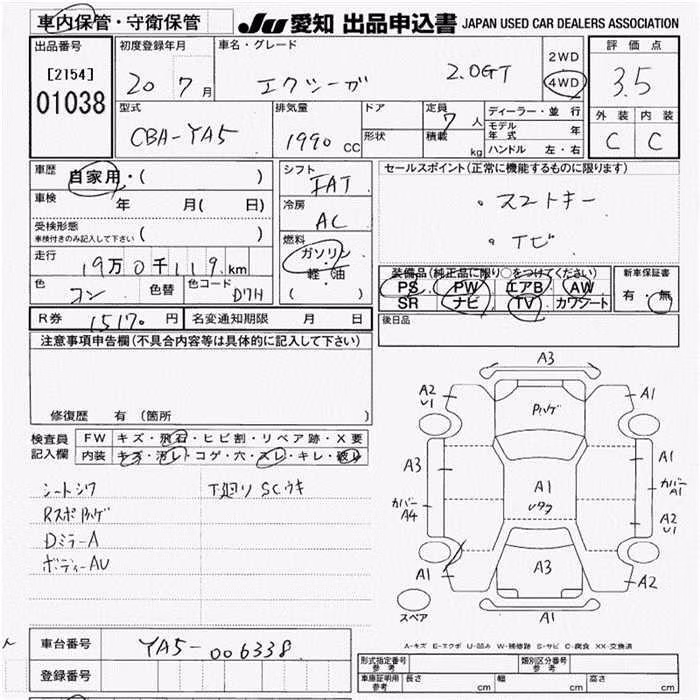 車内保管・守衛保管 JU 愛知 出品申込書 JAPAN USED CAR DEALERS ASSOCIATION
出品番号 初度登録年月 車名・グレード 2WD 評価点
[2154] 20 7月 エクシーガ 2.0GT 4WD 3.5
01038
型式 排気量 ドア 定員 ディーラー・並行 外装 内装
7人 モデル年式 年
CBA-YA5 1990 CC 形状 積載 kg ハンドル 左・右 C C
車歴 自家用・( ) シフト FAT セールスポイント(正常に機能するものに限ります)
車検 年 月( 日) 冷房 AC ・スマートキー
受検形態 車検付きのみ記入して下さい ( ) 燃料 ・ナビ
走行 19万0千119km ガソリン・軽・油 ( ) 装備品(純正品に限り○をつけてください) 新車保証書
色 コン 色替 色コード D7H PS PW エアB AW 有・無
SR ナビ TV カワシート
R券 15170円 名変通知期限 月 日 後日品
注意事項申告欄(不具合内容等は具体的に記入して下さい)
修復歴 有(箇所
検査員記入欄 FW キズ・飛石・ヒビ割・リペア跡・X要
内装 キズ・汚レ・コゲ・穴・スレ・キレ・破レ
シートシワ 下廻りSCウキ
Rスポハゲ
DミラーA
ボディーAU
A3
A2 U1 Pハゲ A1
A3 A1
カバーA4 A1 カバーA1
A2 U1
A1 A3 A2
スペア A1
A-キズ E-エクボ U-凹み W-補修跡 S-サビ C-腐食 XX-交換済
車台番号 YA5-006338
登録番号
型式指定番号 参考 類別区分番号 参考
車庫証明用 参考 長さ cm 幅 cm 高さ cm